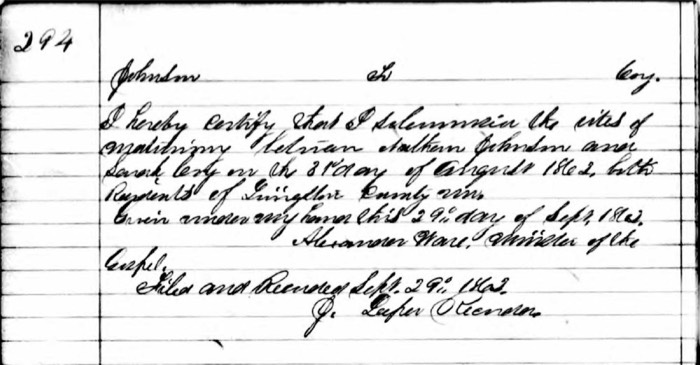 294
Johnson To Coy.
I hereby certify that I solemnized the rites of
matrimony between Nathan Johnson and
Sarah Coy on the 31st day of August 1862, both
Residents of County Mo.
Given under my hand this 29th day of Sept. 1862.
Alexander Ware, Minister of the
Gospel.
Filed and Recorded Sept. 29th 1862.
J. Recorder